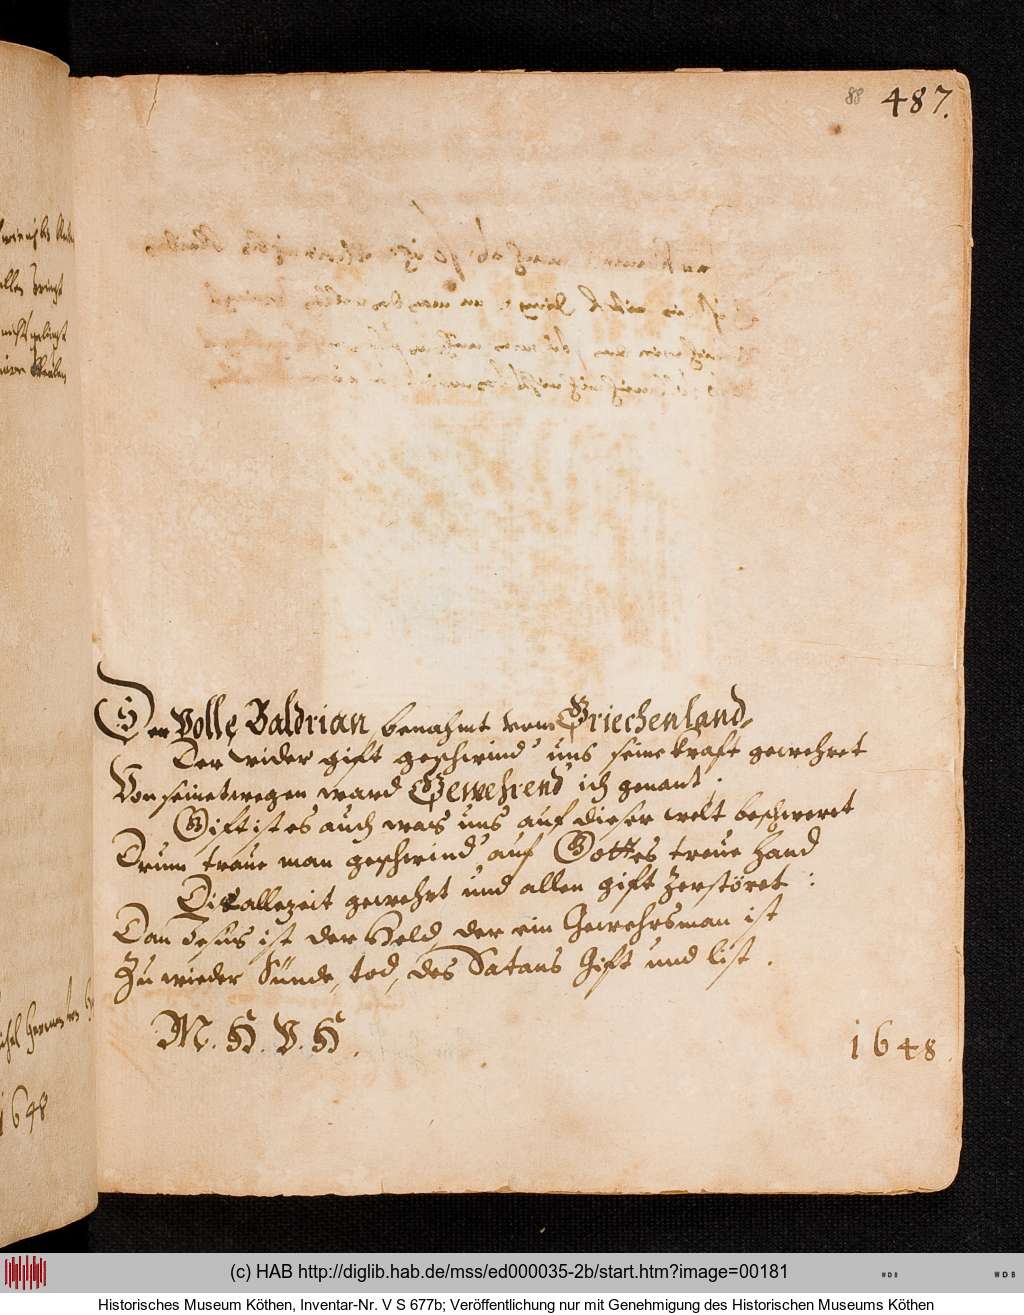 88 487.
Der Volle Baldrian benahmt vom Griechenland,
Der wider gift geschwind uns seine kraft gewehret
Von seinetwegen ward Gewehrend ich genant
Gift ist es auch was uns auf dieser welt beschweret
Drum traue man geschwind auf Gottes treue Hand
Die allezeit gewehrt und allen gift zerstöret :
Dan Jesus ist der Held, der ein Gewehrsman ist
Zu wieder Sünde, tod, des Satans Gift und list .
M. H. V. H. 1648.
1648
(c) HAB http://diglib.hab.de/mss/ed000035-2b/start.htm?image=00181
WDB
WDB
Historisches Museum Köthen, Inventar-Nr. V S 677b; Veröffentlichung nur mit Genehmigung des Historischen Museums Köthen